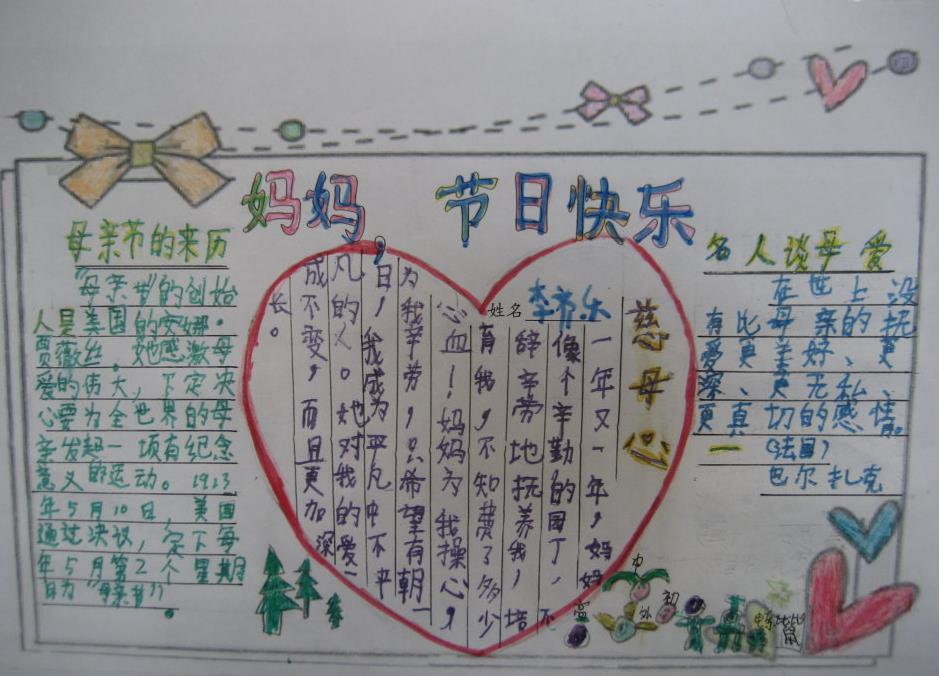 妈妈，节日快乐
母亲节的来历
“母亲节”的创始
人是美国的安娜·
贾薇丝。她感激母
爱的伟大，下定决
心要为全世界的母
亲发起一项有纪念
意义的运动。1913
年5月10日，美国
通过决议，定下每
年5月第2个星期
日为“母亲节”
。
慈母心
姓名
一年又一年，妈妈
像个辛勤的园丁，不
辞辛劳地抚养我，培
育我，不知费了多少
心血！妈妈为我操心，
为我辛劳，只希望有朝一
日，我成为平凡中不平
凡的人。她对我的爱一
成不变，而且更加深
长。
名人谈母爱
在世上没
有比母亲的抚
爱更美好、更
深、更无私、
更真切的感情。
—（法国）
巴尔扎克
中
初
外
高